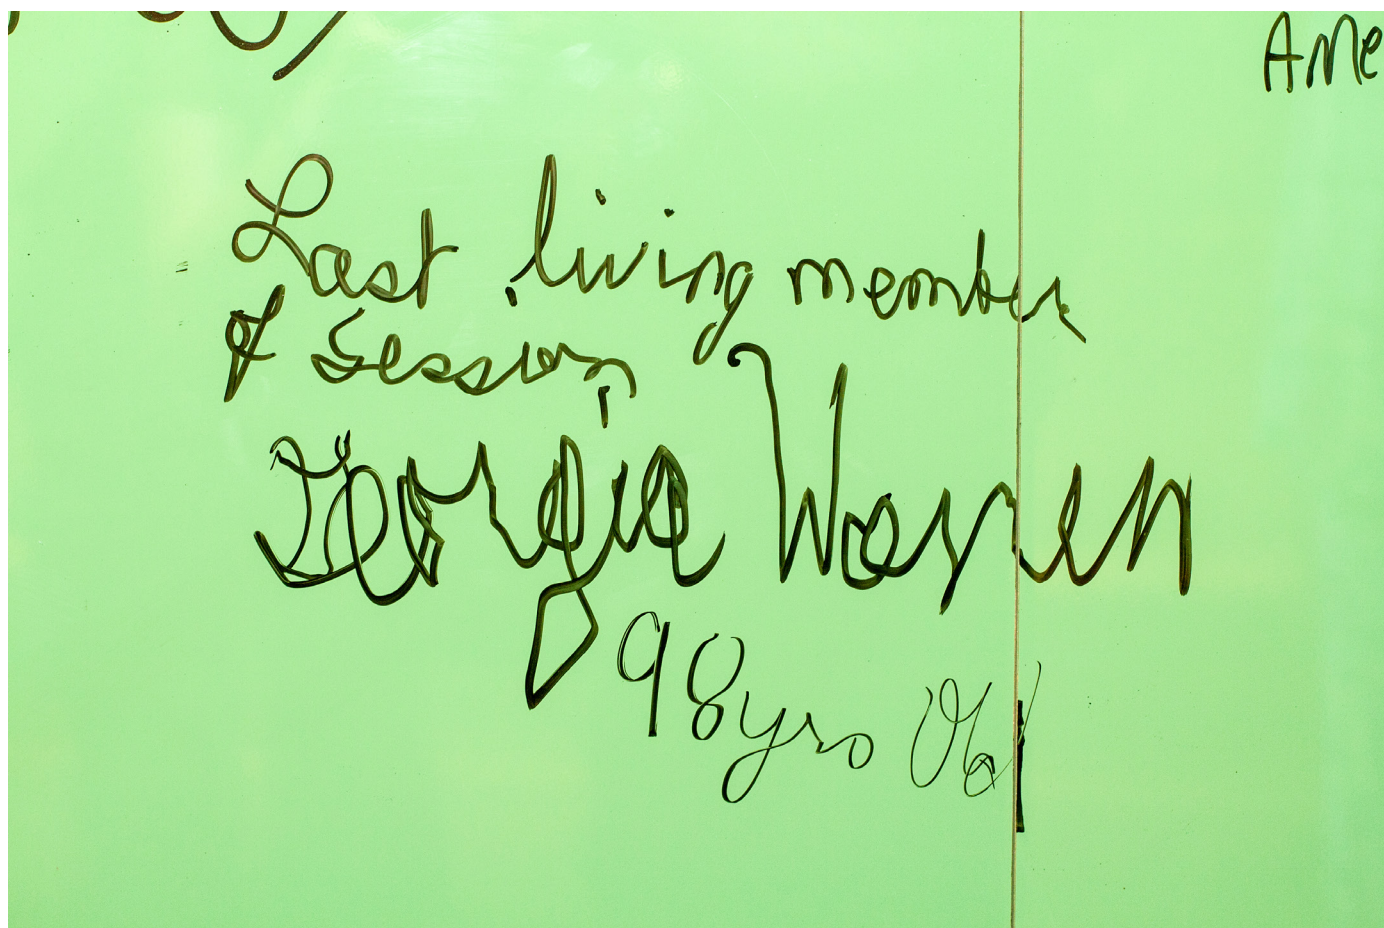 Ame
Last living member
of Session
Georgia Warren
98 yrs Old